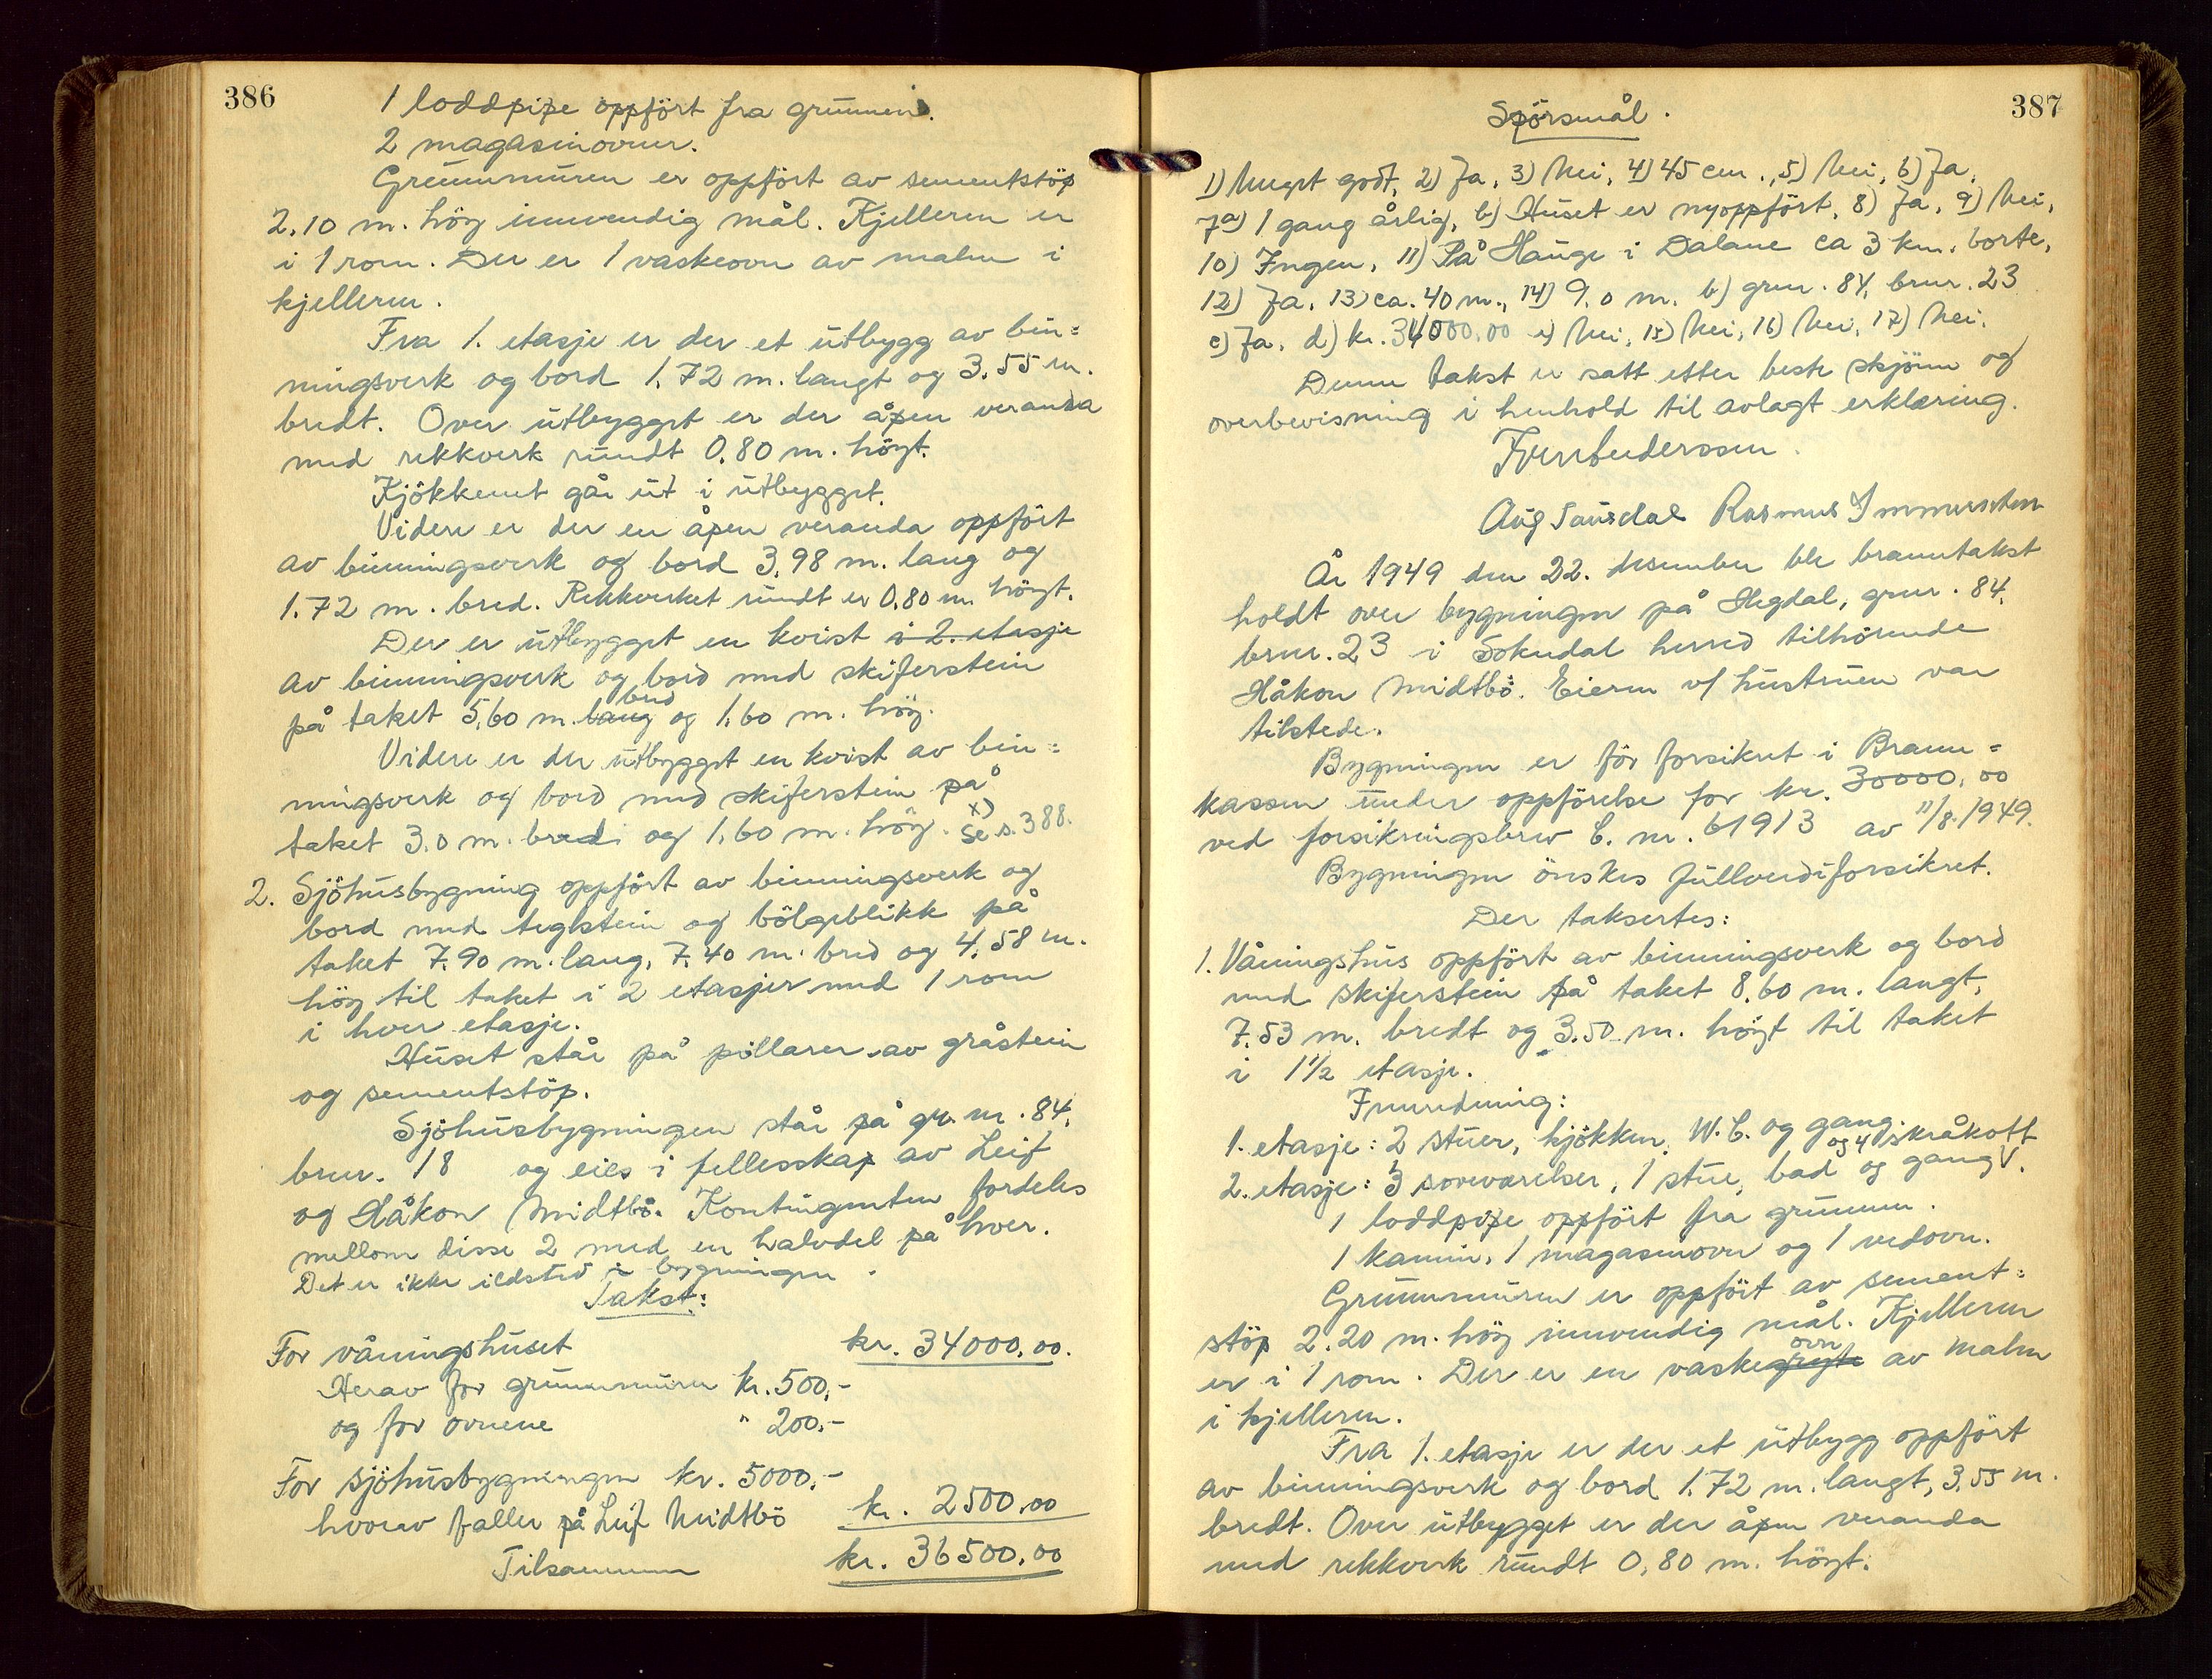 386
1 loddpipe oppført fra grunnen.
2 magasinovner.
Grunnmuren er oppført av sementstöp
2.10 m. høg innvendig mål. Kjelleren er
i 1 rom. Der er 1 vaskeovn av malm i
kjelleren.
Fra 1. etasje er der et utbygg av bin=
ningsverk og bord 1.72 m. langt og 3.55 m.
bredt. Over utbygget er der åpen veranda
med rekkverk rundt 0.80 m. högt.
Kjökkenet går ut i utbygget.
Videre er der en åpen veranda oppfört
av binningsverk og bord 3.98 m. lang og
1.72 m. bred. Rekkverket rundt er 0.80 m. högt.
Der er utbygget en kvist i 2. etasje
av binningsverk og bord med skiferstein
bred
på taket 5.60 m. lang og 1.60 m. hög.
Videre er der utbygget en kvist av bin=
ningsverk og bord med skiferstein på
taket 3.0 m. bred og 1.60 m. hög. x) Se s. 388.
2. Sjöhusbygning oppfört av binningsverk og
bord med teglstein og bölgeblikk på
taket 7.90 m. lang, 7.40 m. bred og 4.58 m.
hög til taket i 2 etasjer med 1 rom
i hver etasje.
Huset står på pillarer av gråstein
og sementstöp.
Sjöhusbygningen står på gr. nr. 84,
brnr. 18 og eies i fellesskap av Leif
og Håkon Midtbö. Kontingenten fordeles
mellom disse 2 med en halvdel på hver.
Det er ikke ildsted i bygningen.
Takst:
For våningshuset kr. 34000.00.
Herav for grunnmuren kr. 500,-
og for ovnene " 200,-
For sjöhusbygningen kr. 5000,-
hvorav faller på Leif Midtbö kr. 2500.00
Tilsammen kr. 36500.00
387
Spörsmål.
1) Meget godt, 2) Ja, 3) Nei, 4) 45 cm., 5) Nei, 6) Ja,
7a) 1 gang årlig, b) Huset er nyoppfört, 8) Ja, 9) Nei,
10) Ingen, 11) På Hauge i Dalane ca 3 km. borte,
12) Ja, 13) ca. 40 m., 14) 9.0 m. b) grnr. 84, brnr. 23
c) Ja, d) kr. 34000.00 e) Nei, 15) Nei, 16) Nei, 17) Nei.
Denne takst er satt etter beste skjönn og
overbevisning i henhold til avlagt erklæring.
Aug Tausdal Rasmus
År 1949 den 22. desember ble branntakst
holdt over bygningen på Hegdal, grnr. 84,
brnr. 23 i Sokndal herred tilhörende
Håkon Midtbö. Eieren v/ hustruen var
tilstede.
Bygningen er för forsikret i Brann=
kassen under oppförelse for kr. 30000.00
ved forsikringsbrev C. nr. 61913 av 11/8. 1949.
Bygningen önskes fullverdiforsikret.
Der taksertes:
1. Våningshus oppfört av binningsverk og bord
med skiferstein på taket 8.60 m. langt,
7.53 m. bredt og 3.50 m. högt til taket
i 1½ etasje.
Innredning:
1. etasje: 2 stuer, kjökken, W.C. og gang.
og 4 skråkott
2. etasje: 3 soveværelser, 1 stue, bad og gang V.
1 loddpipe oppfört fra grunnen.
1 kamin, 1 magasinovn og 1 vedovn.
Grunnmuren er oppfört av sement=
stöp 2.20 m. hög innvendig mål. Kjelleren
ovn
er i 1 rom. Der er en vaskegryte av malm
i kjelleren.
Fra 1. etasje er der et utbygg oppfört
av binningsverk og bord 1.72 m. langt, 3.55 m.
bredt. Over utbygget er der åpen veranda
med rekkverk rundt 0.80 m. högt.